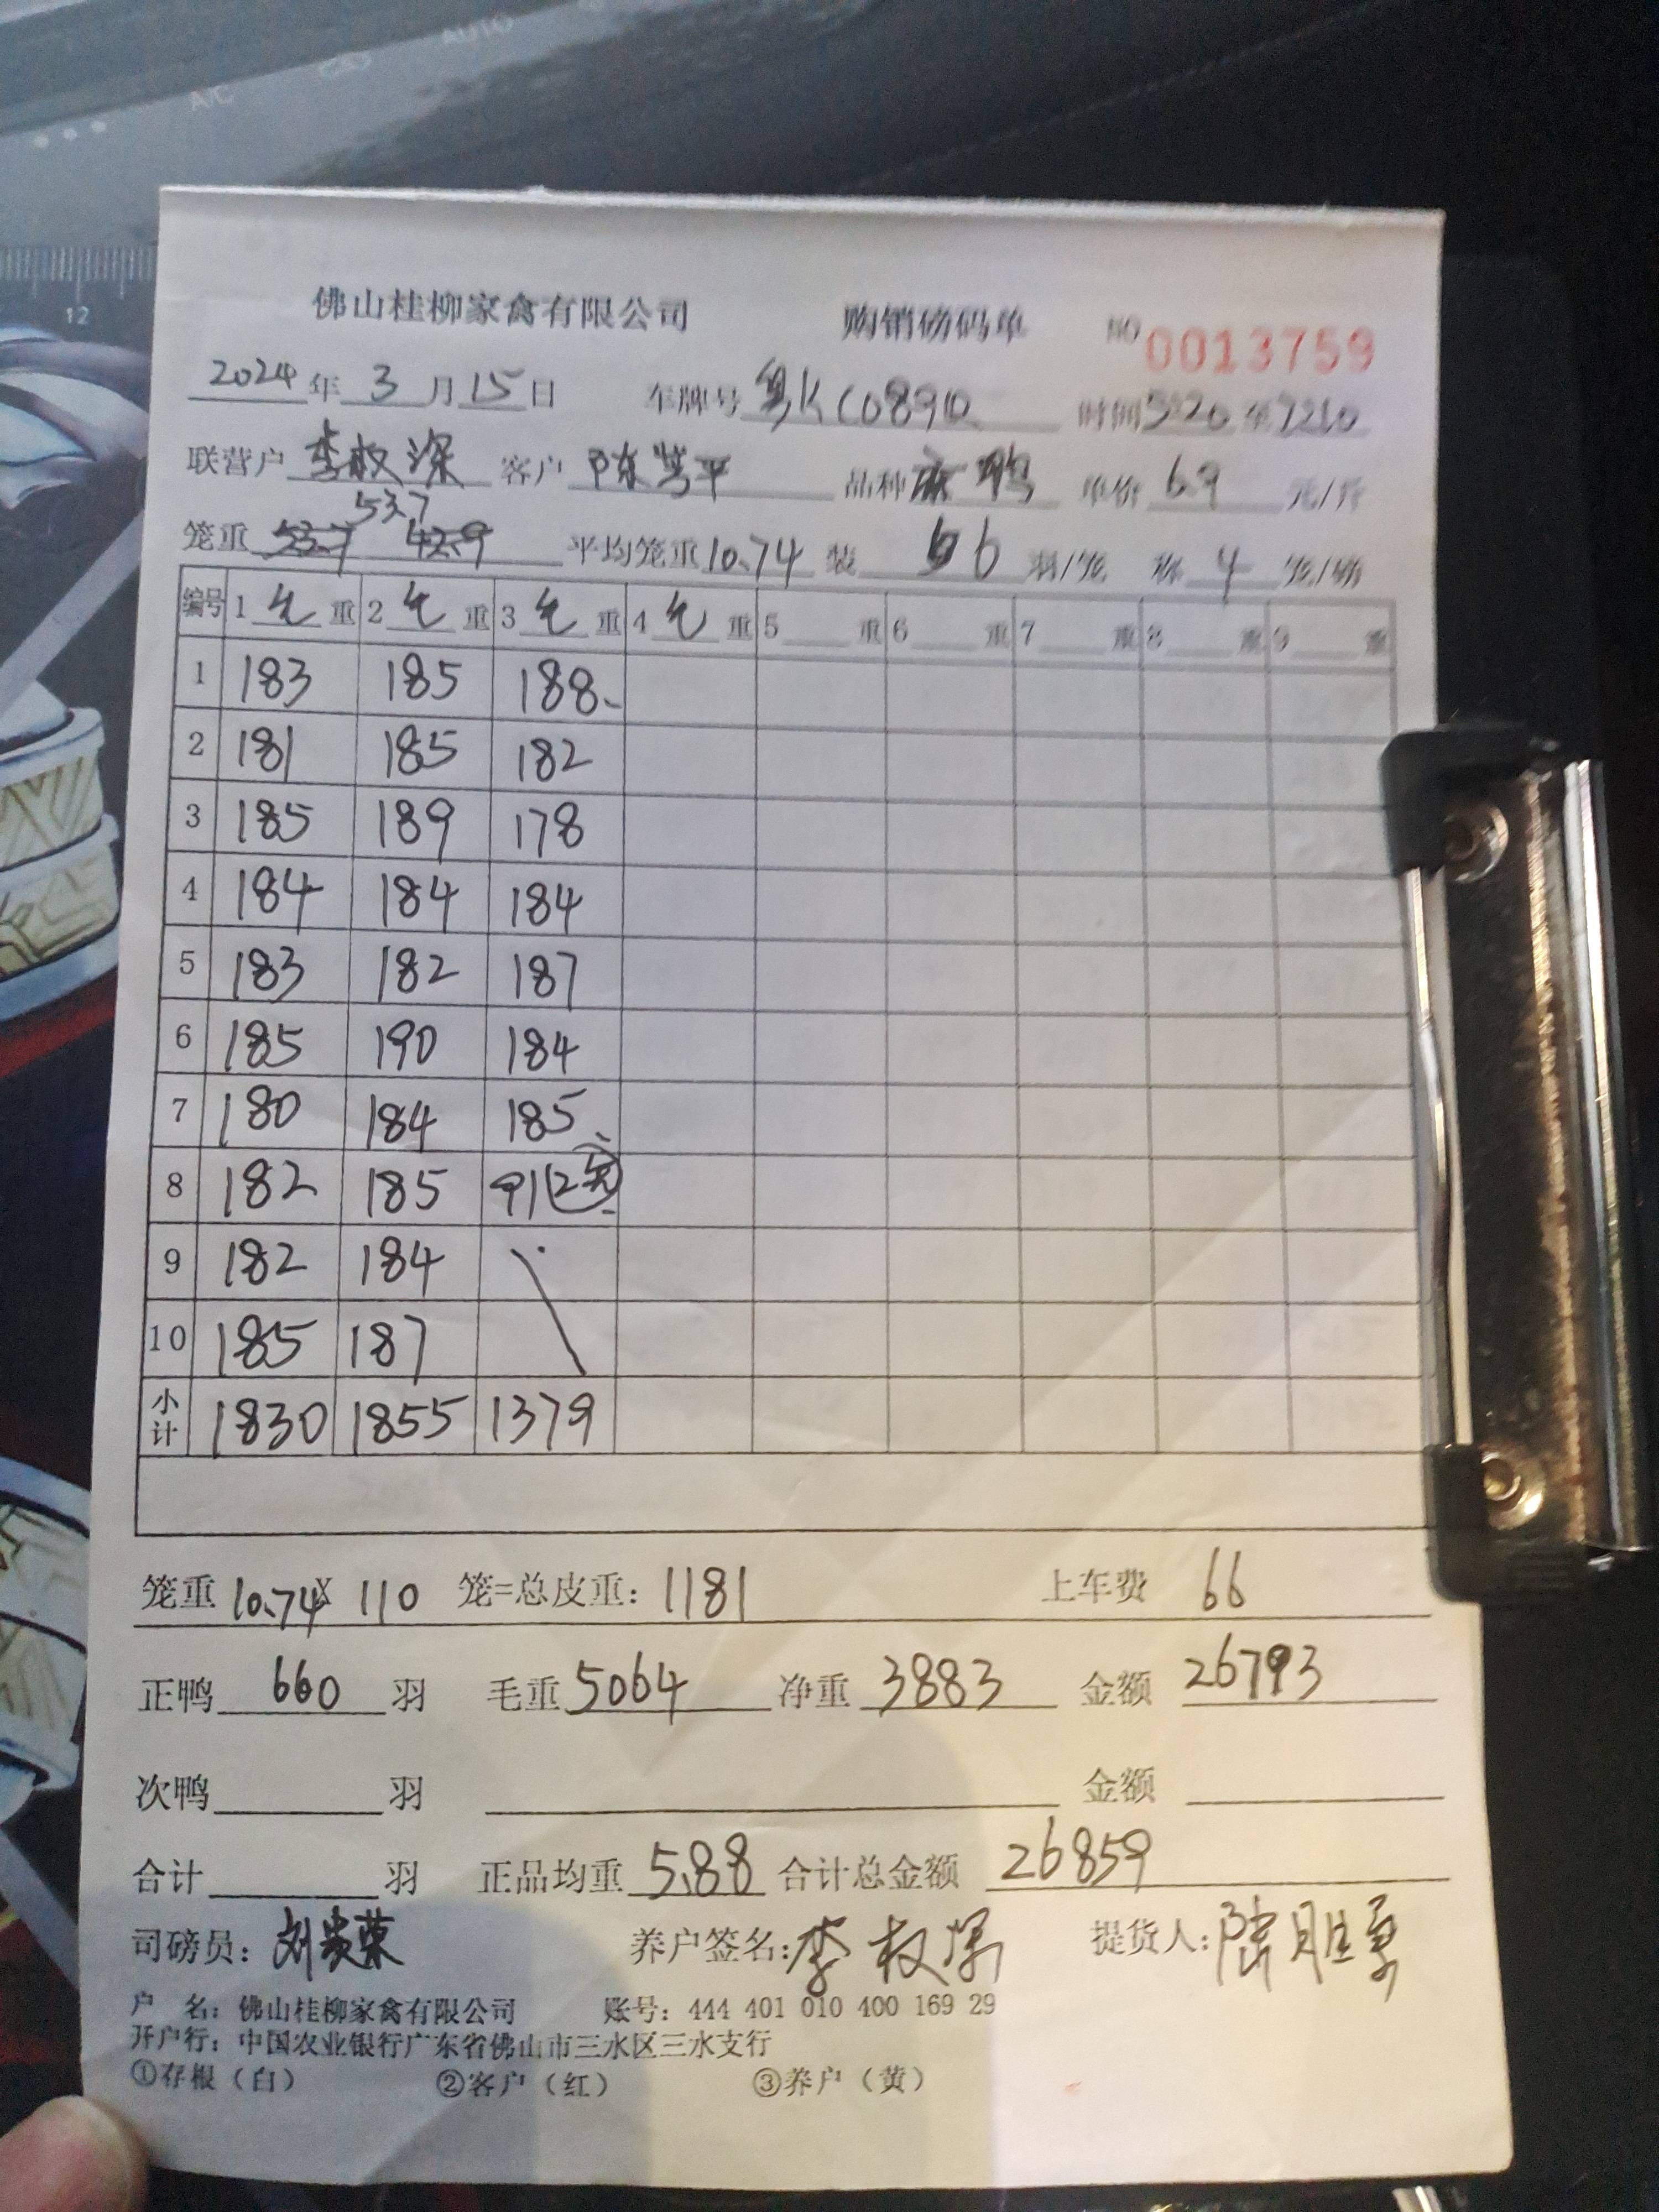 A/C AUTO
12
佛山桂柳家禽有限公司 购销磅码单 NO 0013759
2024 年 3 月 15 日 车牌号 粤K C0890 时间 5:20 至 7210
联营户 李权深 客户 陈笃平 品种 麻鸭 单价 6.9 元/斤
53.7
笼重 53.7 42.9 平均笼重 10.74 装 6 羽/笼 称 4 笼/磅
编号 1 毛 重 2 毛 重 3 毛 重 4 毛 重 5 重 6 重 7 重 8 重 9 重
1 183 185 188
2 181 185 182
3 185 189 178
4 184 184 184
5 183 182 187
6 185 190 184
7 180 184 185
8 182 185 91
9 182 184
10 185 187
小计 1830 1855 1379
笼重 10.74 X 110 笼=总皮重: 1181 上车费 66
正鸭 660 羽 毛重 5064 净重 3883 金额 26793
次鸭 羽 金额
合计 羽 正品均重 5.88 合计总金额 26859
司磅员: 刘贵荣 养户签名: 李权深 提货人:
户 名: 佛山桂柳家禽有限公司 账号: 444 401 010 400 169 29
开户行: 中国农业银行广东省佛山市三水区三水支行
①存根(白) ②客户(红) ③养户(黄)